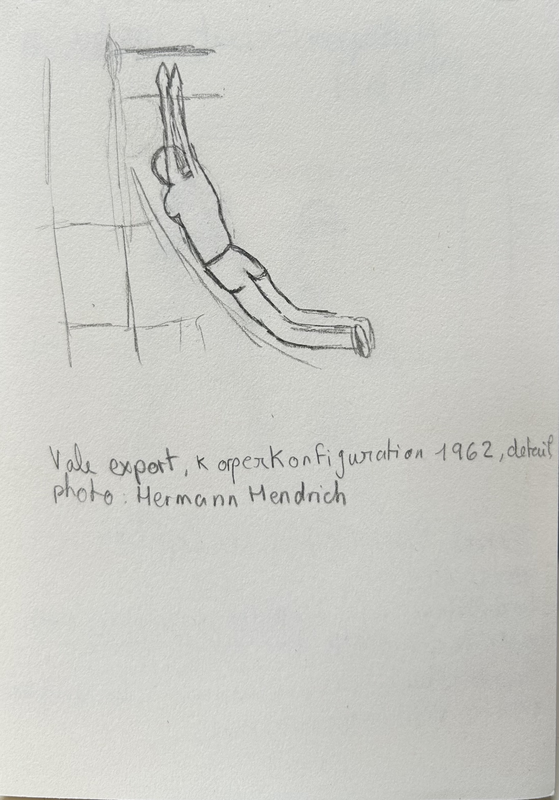 Vale export, Korperkonfiguration 1962, detail
photo : Hermann Hendrich